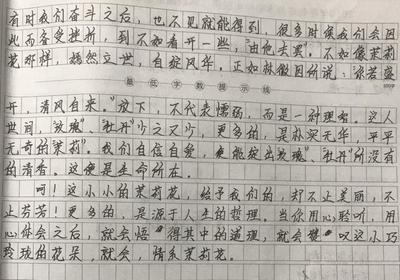 有时我们奋斗之后，也不见就能得到，很多时候我们会因
此而备受挫折，到不如看开一些，"由他去罢"，不如像茉莉
花那样，嫣然立世，自绽风华。正如林徽因所说："你若盛
最低字数提示线
开，清风自来。"放下，不代表懦弱，而是一种理智。这人
世间，"玫瑰"、"牡丹"少之又少，更多的，是朴实无华，平平
无奇的"茉莉"。我们自信自爱，便能绽出玫瑰"、"牡丹"所没有
的清香。这便是生命所在。
呵！这小小的茉莉花，给予我们的，却不止美丽，不
止芳芳！更多的，是源于人生的哲理。当你用心聆听，用
心体会之后，就会悟得其中的道理，就会叹这小巧
玲珑的花朵，就会，情系茉莉花。